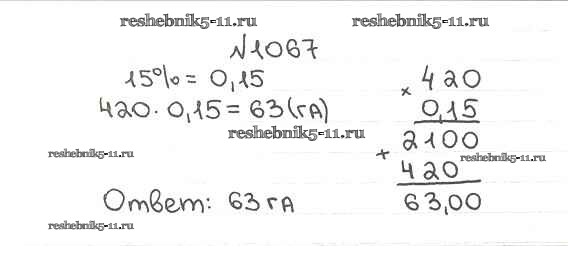 reshebnik5-11.ru reshebnik5-11.ru
№1067
15% = 0,15
420 · 0,15 = 63 (га)
× 420
0,15
reshebnik5-11.ru
+ 2100
420
63,00
reshebnik5-11.ru reshebnik5-11.ru
Ответ: 63 га
reshebnik5-11.ru